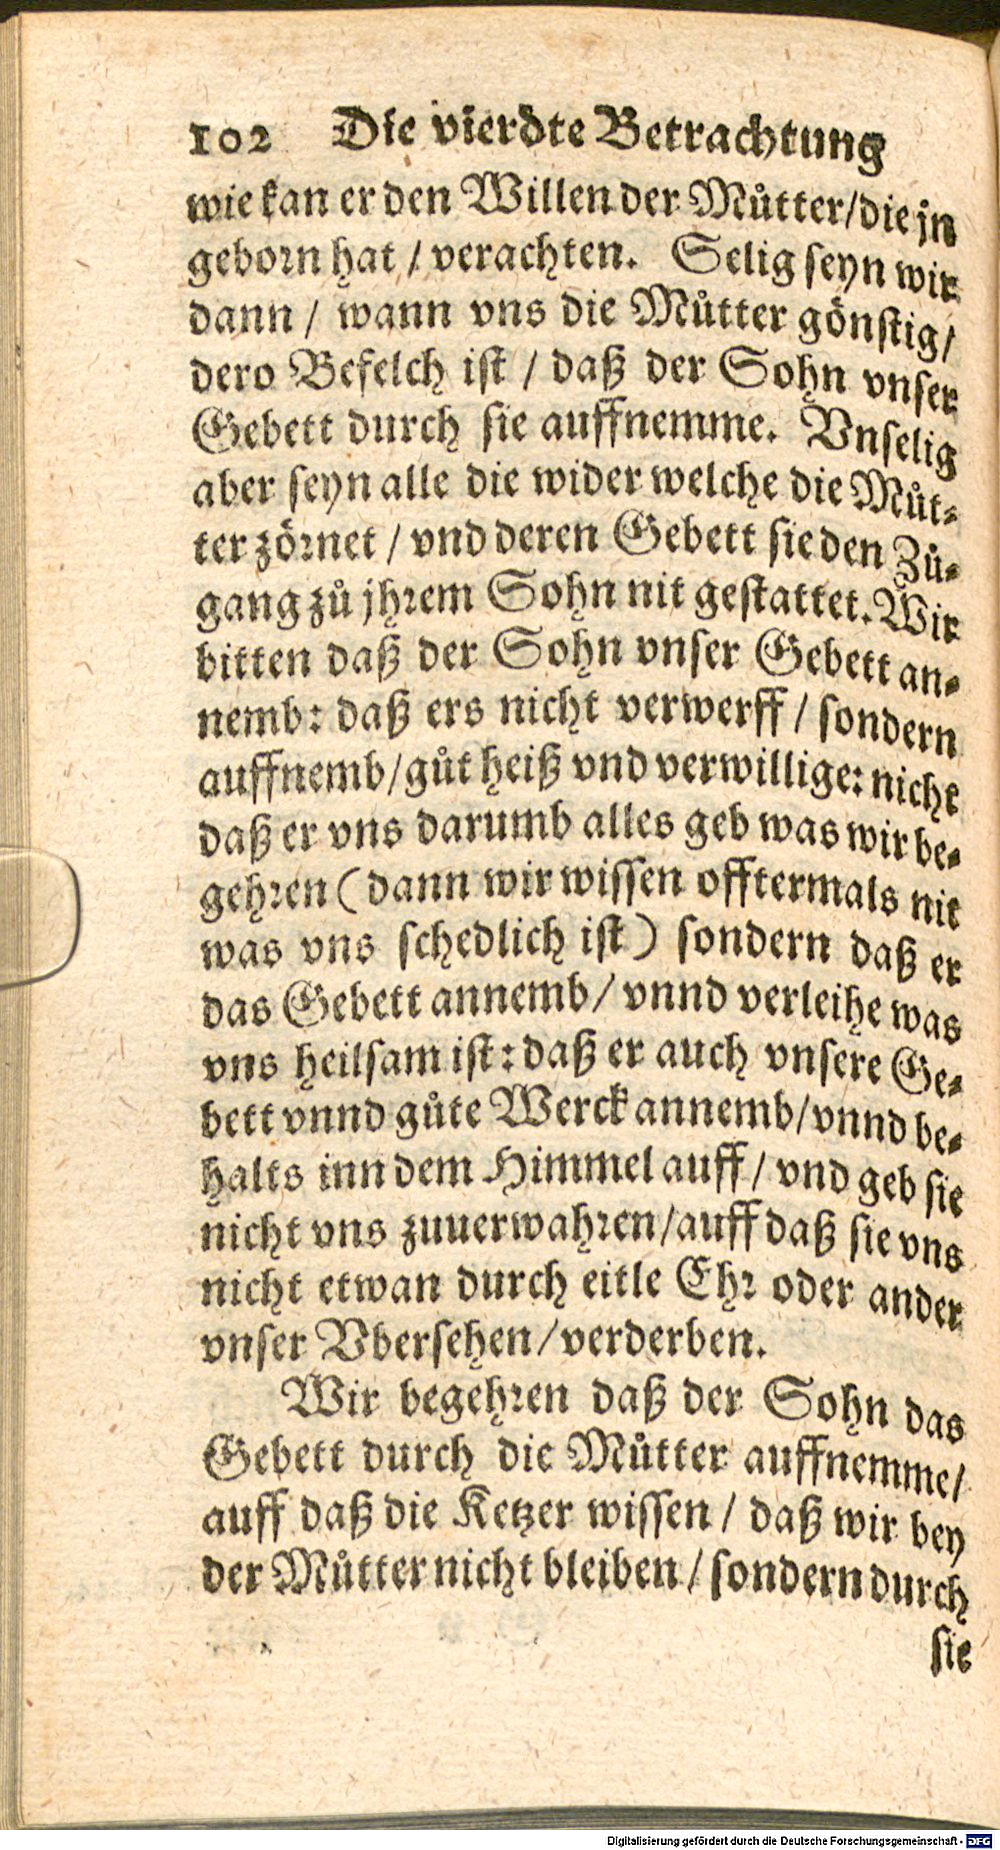 102 Die vierdte Betrachtung
wie kan er den Willen der Můtter/die jn
geborn hat / verachten. Selig seyn wir
dann / wann vns die Můtter gönstig/
dero Befelch ist / daß der Sohn vnser
Gebett durch sie auffnemme. Vnselig
aber seyn alle die wider welche die Můt-
ter zörnet / vnd deren Gebett sie den Zů-
gang zů jhrem Sohn nit gestattet. Wir
bitten daß der Sohn vnser Gebett an-
nemb: daß ers nicht verwerff / sondern
auffnemb/gůt heiß vnd verwillige: nicht
daß er vns darumb alles geb was wir be-
gehren (dann wir wissen offtermals nit
was vns schedlich ist) sondern daß er
das Gebett annemb/ vnnd verleihe was
vns heilsam ist: daß er auch vnsere Ge-
bett vnnd gůte Werck annemb/vnnd be-
halts inn dem Himmel auff / vnd geb sie
nicht vns zuuerwahren/auff daß sie vns
nicht etwan durch eitle Ehr oder ander
vnser Vbersehen/verderben.
Wir begehren daß der Sohn das
Gebett durch die Můtter auffnemme/
auff daß die Ketzer wissen / daß wir bey
der Můtter nicht bleiben / sondern durch
sie
Digitalisierung gefördert durch die Deutsche Forschungsgemeinschaft - DFG